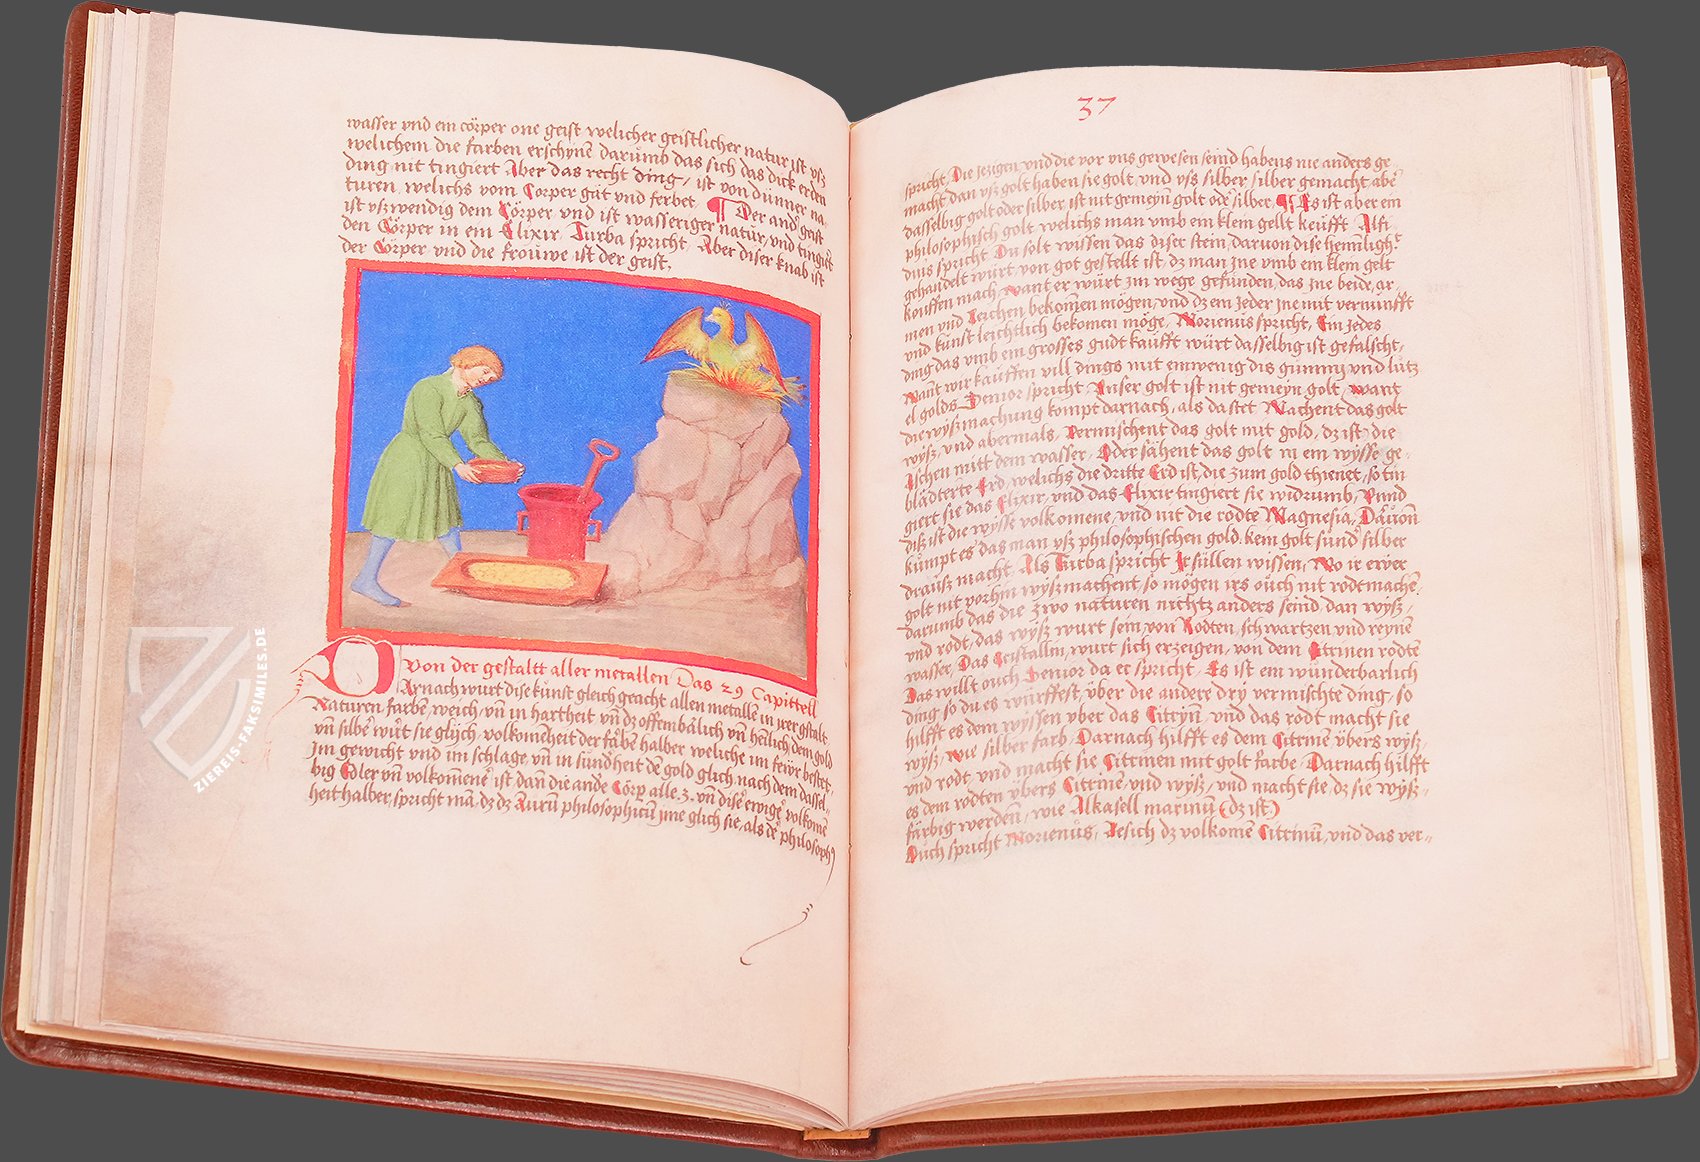 wasser vnd ein cörper one geist welicher geistlicher natur ist vß
welichem die farben erschynen darumb das sich das dick erden
ding nit tingiert Aber das recht ding / ist von dünner na¬
turen welichs vom Corper gat vnd ferbet ¶ Der ander geist
ist vszwendig dem Cörper vnd ist wasseriger natur, vnd tingiert
den Cörper in ein Elixir, Turba spricht, Aber diser knab ist
der Cörper vnd die frouwe ist der geist,
Von der gestaltt aller metallen Das 29 Capittell
DArnach wurt dise kunst gleich geacht allen metallen in irer gstalt,
Naturen farben, weich, vn in hartheit vnd dz offembälich vn heilich, dem gold
vn silber würt sie glych, volkomheit der farben halber weliche im feiwr bestet,
Im gewicht vnd im schlage, vn in sundheit de gold glich nach dem dassel¬
big Edler vn volkomene ist dan die ande Cörp alle.3. vn diser ewige volkome
heit halber, spricht man dz dz Aurum philosophicum jme glich sie, als de philosoph
37
spricht, Die jezigen vnd die vor vns gewesen seind habens nie anders ge,
macht dan vß golt haben sie golt, vnd vß silber silber gemacht, aber
dasselbig golt oder silber ist nit gemeyn golt oder silber, ¶ Es ist aber ein
philosophisch golt, welichs man vmb ein klein gellt keufft Alfi
dius spricht Du solt wissen das diser stein, daruon dise heimligh¬
gehandelt würt, von got gestellt ist, dz man jne vmb ein klem gelt
kouffen mach, want er würt im wege gefunden, das jne beide, ar,
men vnd Reichen bekomen mögen, vnd dz ein jeder jne mit vernunfft
vnd kunst leichtlich bekomen möge, Morienus spricht, Ein jedes
ding das vmb ein grosses gudt kaufft würt dasselbig ist gefalscht,
Want wir kauffen vill dings mit einwenig dis gummi vnd lütz
el golds, Senior spricht Vnser golt ist nit gemeyn golt, want
die wyßmachung kompt darnach, als da stet Machent das golt
wyß, vnd abermals, Vermischent das golt mit gold, dz ist, die
Eschen mitt dem wasser, Oder sähent das golt in ein wysse ge,
blädterte Erd, welichs die dritte Erd ist, die zum gold thienet, so tin
giert sie das Elixir, vnd das Elixir tingiert sie widrumb, Vnnd
diß ist die wysse volkomene, vnd nit die rodte Magnesia, Dauon
kumpt es das man vß philosophischen gold, kein golt sund silber
drauß macht Als Turba spricht Ir süllen wissen, Wo ir ewer
golt nit vorhin wyß machent, so mögen irs ouch nit rodt machen,
darumb das die zwo naturen nichtz anders seind dan wyß,
vnd rodt, das wyß wurt sein von Rodten, schwartzen vnd reynen
wasser, Das Cristallin, wurt sich erzeigen, von dem Citrinen rodten
Das willt ouch Senior da er spricht, Es ist ein wunderbarlich
ding, so du es würffest, über die andere dry vermischte ding, so
hilfft es dem wyssen vber das Citryn, vnd das rodt macht sie
wyß, wie silber farb, Darnach hilfft es dem Citrine übers wyß,
vnd rodt vnd macht sie Citrinen mit golt farbe, Darnach hilfft
es dem rodten übers Citrinen vnd wyß, vnd macht sie, dz sie wyß,
färbig werden, wie Alkasell marinu (dz ist)
Ouch spricht Morienus, Besich dz volkomen Citrinu, vnd das ver¬
ZIEREIS-FAKSIMILES.DE